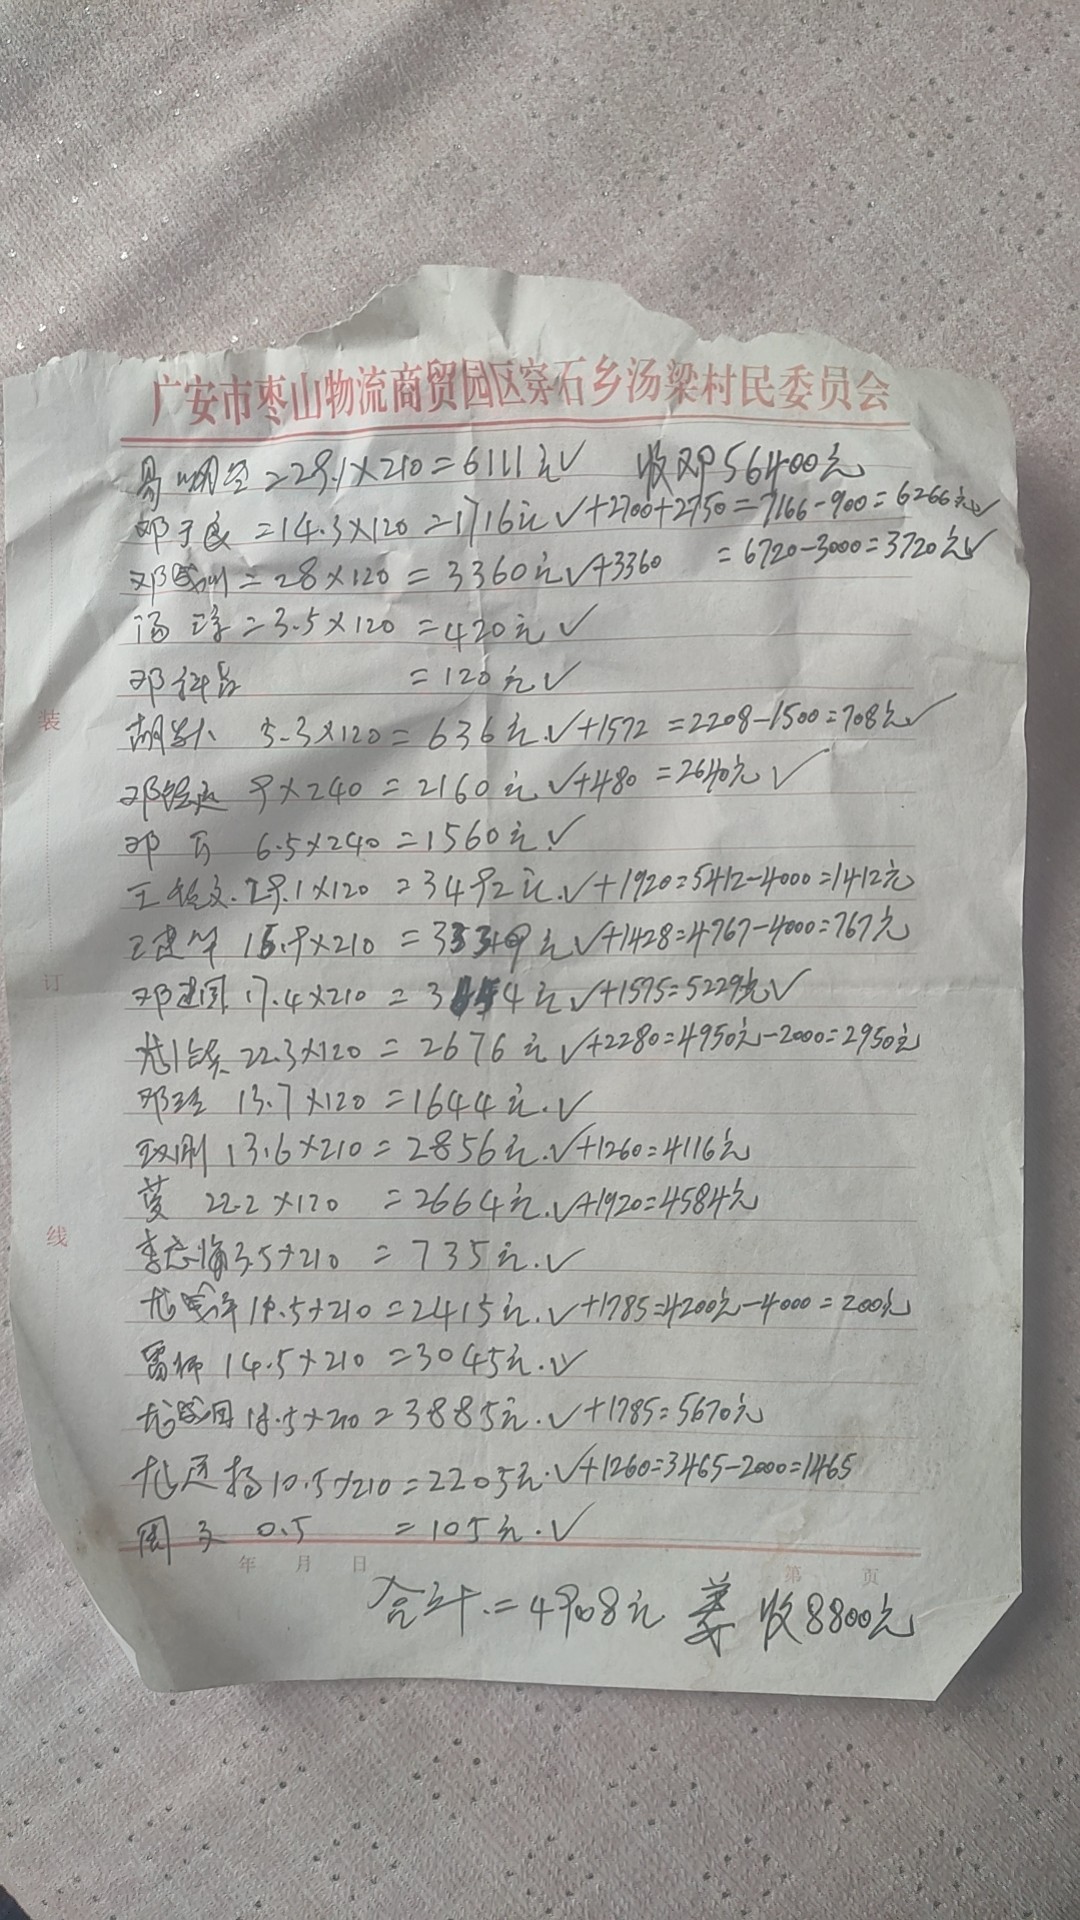 广安市枣山物流商贸园区穿石乡汤梁村民委员会
=29.1×210=6111元✓ 收邓56400元
邓于良=14.3×120=1716元✓+2700+2750=7166-900=6266元✓
邓 =28×120=3360元✓+3360 =6720-3000=3720元✓
汤 =3.5×120=420元✓
邓 =120元✓
胡 5.3×120=636元.✓+1572=2208-1500=708元✓
邓 9×240=2160元✓+480=2640元✓
邓 6.5×240=1560元.✓
王 文.29.1×120=3492元.✓+1920=5412-4000=1412元
王建华 15.9×210=3339元✓+1428=4767-4000=767元
邓建国 17.4×210=3654元✓+1575=5229元✓
22.3×120=2676元✓+2280=4950元-2000=2950元
邓 13.7×120=1644元.✓
刚 13.6×210=2856元.✓+1260=4116元
22.2×120=2664元.✓+1920=4584元
李 3.5×210=735元.✓
龙 11.5×210=2415元.✓+1785=4200元-4000=200元
雷 14.5×210=3045元.✓
龙 18.5×210=3885元.✓+1785=5670元
龙 扬10.5×210=2205元.✓+1260=3465-2000=1465
周文 0.5 =105元.✓
年 月 日 第 页
合计.=4908元 姜 收8800元
装
订
线